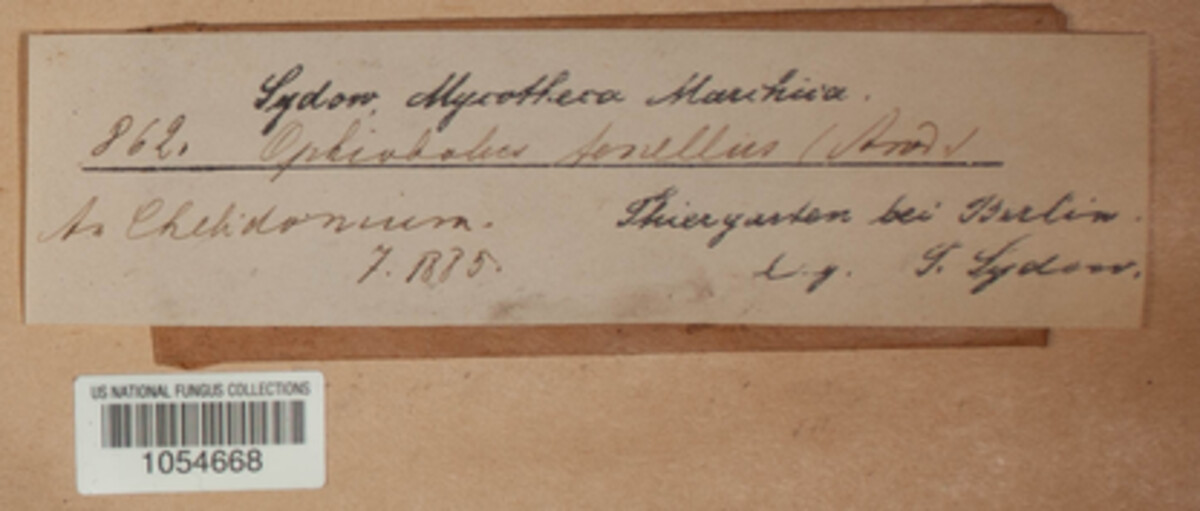 Sydow, Mycotheca Marchica.
862. Ophiobolus tenellus (Awd.)
An Chelidonium. Thiergarten bei Berlin.
7. 1885. leg. P. Sydow.
US NATIONAL FUNGUS COLLECTIONS
1054668